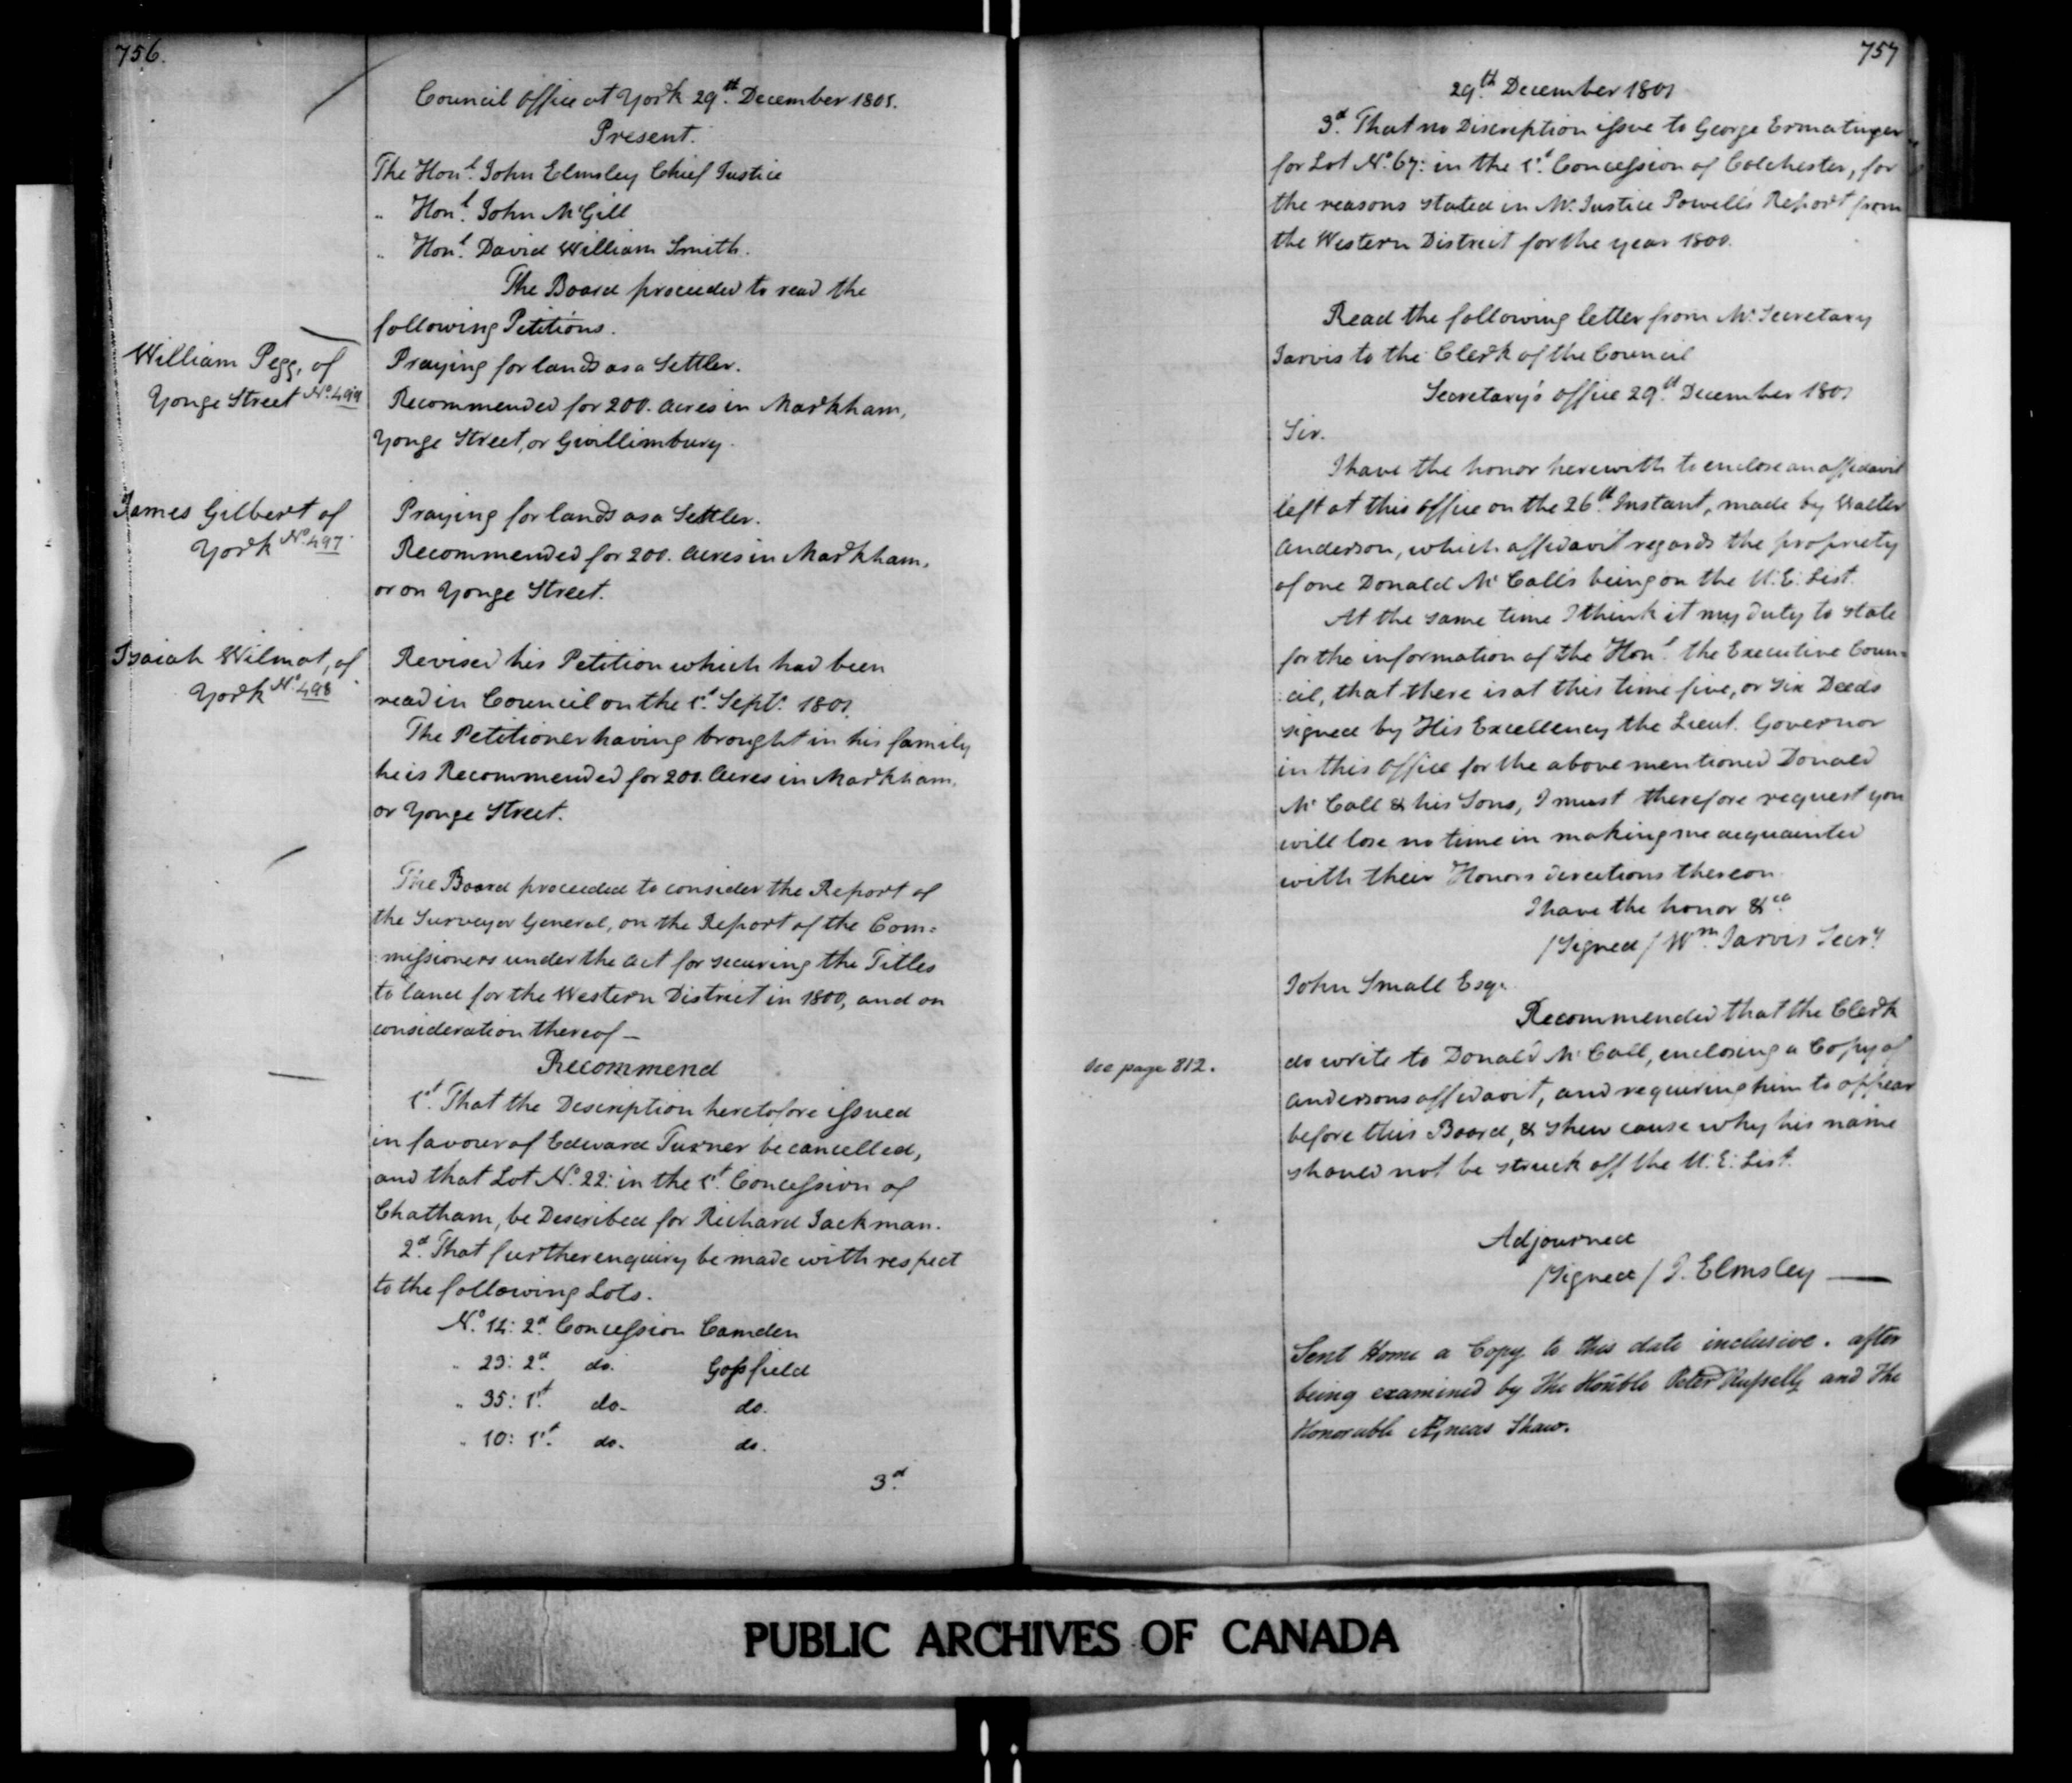 756.
Council Office at York 29th December 1801.
Present.
The Honl. John Elmsley Chief Justice
" Honl. John McGill
" Honl. David William Smith.
The Board proceeded to read the
following Petitions.
William Pegg, of
Yonge Street No. 499
Praying for lands as a Settler.
Recommended for 200. Acres in Markham,
Yonge Street, or Gwillimbury.
James Gilbert of
York No. 497.
Praying for lands as a Settler.
Recommended for 200. Acres in Markham,
or on Yonge Street.
Isaiah Wilmot, of
York No. 498
Revised his Petition which had been
read in Council on the 1st. Septr. 1801.
The Petitioner having brought in his family
he is Recommended for 200. Acres in Markham,
or Yonge Street.
The Board proceeded to consider the Report of
the Surveyor General, on the Report of the Com=
:missioners under the Act for securing the Titles
to land for the Western District in 1800, and on
consideration thereof —
Recommend
1st. That the Description heretofore issued
in favour of Edward Turner be cancelled,
and that Lot No. 22: in the 1st. Concession of
Chatham, be Described for Richard Jackman.
2d. That further enquiry be made with respect
to the following Lots.
No. 14: 2d. Concession Camden
" 23: 2d. do. Gosfield
" 35: 1st. do. do.
" 10: 1st. do. do.
3d.
757
29th. December 1801
3d. That no Discription issue to George Ermatinger
for Lot No. 67: in the 1st. Concession of Colchester, for
the reasons stated in Mr. Justice Powell's Report from
the Western District for the year 1800.
Read the following letter from Mr. Secretary
Jarvis to the Clerk of the Council
Secretary's Office 29th. December 1801
Sir.
I have the honor herewith to enclose an affidavit
left at this Office on the 26th. Instant, made by Walter
Anderson, which affidavit regards the propriety
of one Donald McCall's being on the U.E. List.
At the same time I think it my duty to state
for the information of the Honl. the Executive Coun=
:cil, that there is at this time five, or six Deeds
signed by His Excellency the Lieut. Governor
in this Office for the above mentioned Donald
McCall & his Sons, I must therefore request you
will lose no time in making me acquainted
with their Honors directions thereon
I have the honor &ca
/Signed/ Wm. Jarvis Secry.
John Small Esqr.
Recommended that the Clerk
see page 812.
do write to Donald McCall, enclosing a Copy of
Andersons affidavit, and requiring him to appear
before this Board, & shew cause why his name
should not be struck off the U.E. List.
Adjourned
/Signed/ J. Elmsley —
Sent Home a Copy to this date inclusive. after
being examined by the Honble Peter Russell and the
Honorable Æneas Shaw.
PUBLIC ARCHIVES OF CANADA